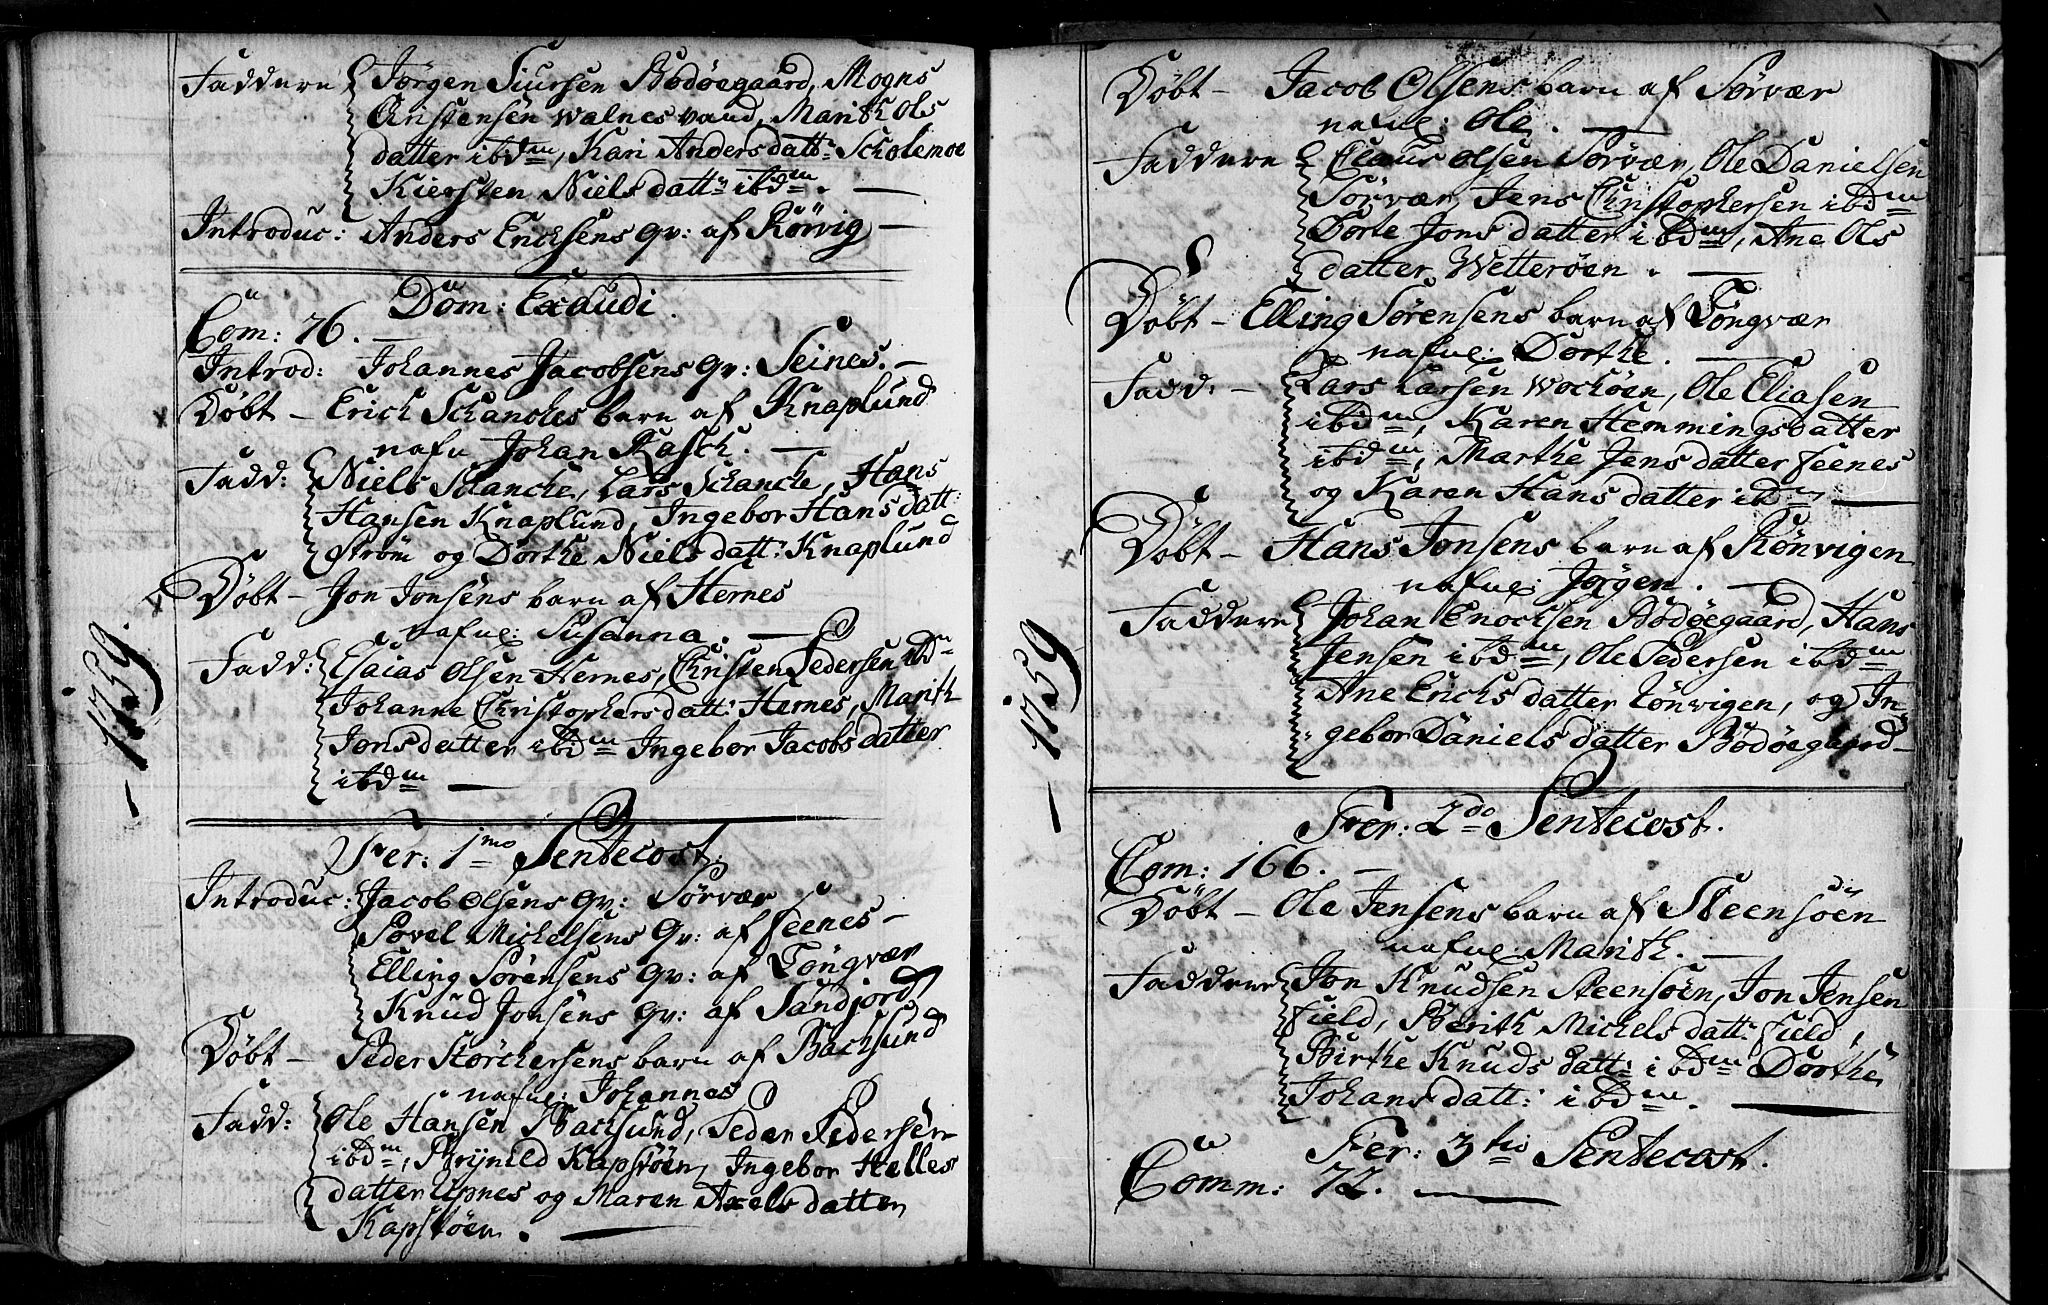 Faddere Jørgen Siursen Bodøegaard, Mogns
Christensen Walnesvand, Marith Ols
datter ibdm, Kari Andersdatt: Scholemoe
Kiersten Nielsdatt: ibdm.
Introduc: Anders Erichsens Qv: af Rørvig
Dom: Exaudi.
Com: 76.
Introd: Johannes Jacobsens Qv: Seines.
Døbt - Erich Schanches barn af Knaplund
nafn Johan Rasch.
Fadd: Niels Schanche, Lars Schanche, Hans
Hansen Knaplund, Ingebor Hansdatt:
Strøm og Dorthe Nielsdatt: Knaplund
Døbt - Jon Jonsens barn af Hernes
nafnl: Susanna.
1759.
Fadd: Esaias Olsen Hernes, Christen Pedersen ibdm
Johanne Christophersdatt: Hernes, Marith
Jonsdatter ibdm Ingebor Jacobsdatter
ibdm
Fer: 1mo Pentecost:
Introduc: Jacob Olsens Qv: Sørvær
Povel Michelsens Qv: af Feenes
Elling Sørensens Qv: af Tøngvær
Knud Jonsens Qv: af Sandjord
Døbt - Peder Storchersens barn af Bachsund
nafnl: Johannes
Fadd: Ole Hansen Bachsund, Peder Pedersen
ibdm, Brynild Kapstøen, Ingebor Helles
datter Upnes og Maren Axelsdatter
Kapstøen.
Døbt - Jacob Olsens barn af Sørvær
nafnl: Ole.
Faddere Claus Olsen Sørvær, Ole Danielsen
Sørvær, Jens Christophersen ibdm
Dorte Jonsdatter ibdm, Ane Ols
datter Wetterøen.
Døbt - Elling Sørensens barn af Tongvær
nafnl: Dorthe.
Fadd: - Lars Larsen Wochøen, Ole Eliasen
ibdm, Karen Hemmingsdatter
ibdm, Marthe Jensdatter Feenes
og Karen Hansdatter ibdm
Døbt - Hans Jonsens barn af Rønvigen
nafnl: Jørgen.
Faddere Johan Enochsen Bodøegaard, Hans
Jensen ibdm, Ole Pedersen ibdm
1759
Ane Erichsdatter Rønvigen, og In
gebor Danielsdatter Bodøegaard
Fer: 2do Pentecost.
Com: 166.
Døbt - Ole Jensens barn af Steensøen
nafnl: Marith.
Faddere Jon Knudsen Steensøen, Jon Jensen
Field, Berith Michelsdatt: Field,
Birthe Knudsdatt: ibdm Dorthe
Johansdatt: ibdm.
Fer: 3tio Pentecost.
Comm: 72.